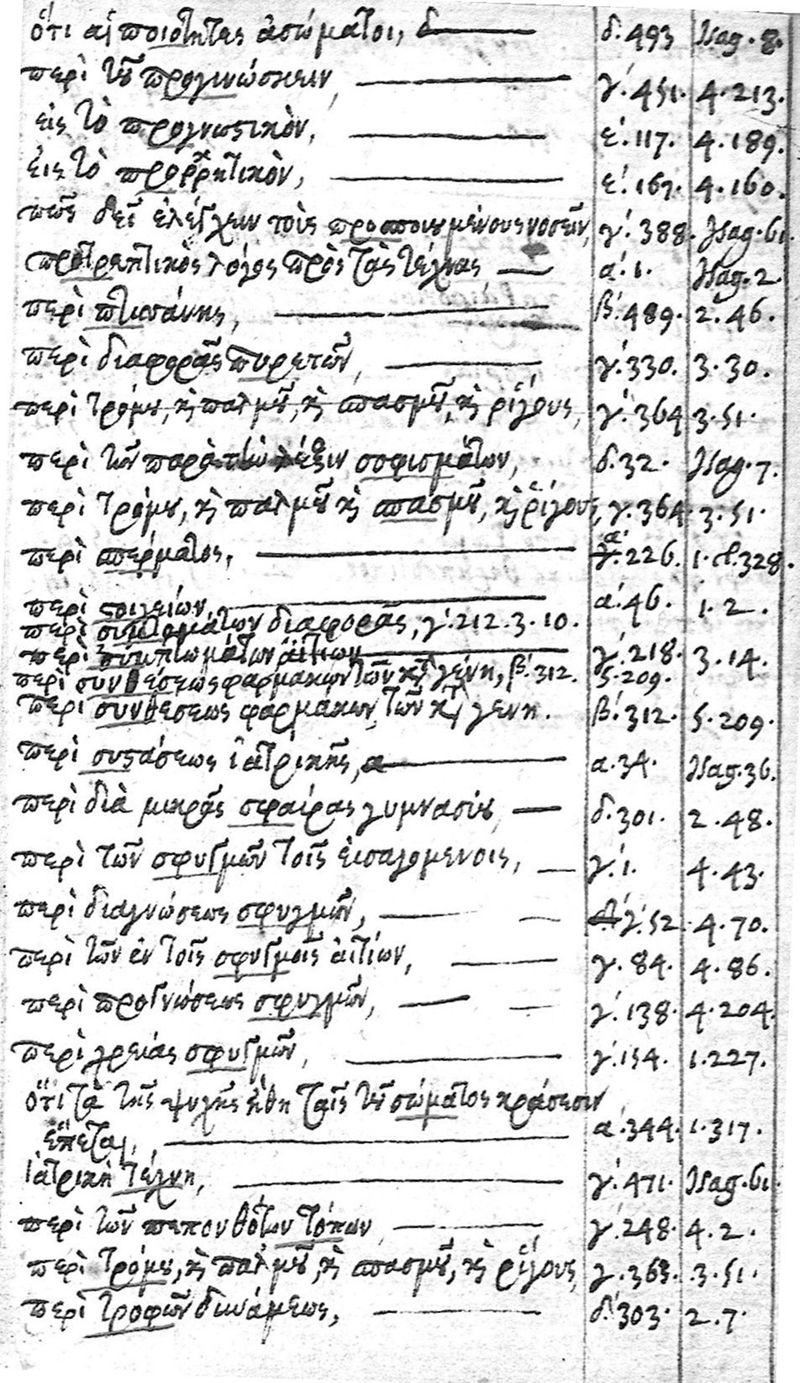 ὅτι αἱ ποιότητες ἀσώματοι, δ.493 Isag.8.
περὶ τοῦ προγινώσκειν, γ.451. 4.213.
εἰς τὸ προγνωστικὸν, ε.117. 4.189.
εἰς τὸ προρρητικὸν, ε.167. 4.160.
πῶς δεῖ ἐλέγχειν τοὺς προσποιουμένους νοσεῖν, γ.388. Isag.61.
προτρεπτικὸς λόγος πρὸς τὰς τέχνας α.1. Isag.2.
περὶ πτισάνης, β.489. 2.46.
περὶ διαφορᾶς πυρετῶν, γ.330. 3.30.
περὶ τρόμου, κὴ παλμοῦ, κὴ σπασμοῦ, κὴ ῥίγους, γ.364 3.51.
περὶ τῶν παρὰ τὴν λέξιν σοφισμάτων, δ.32. Isag.7.
περὶ τρόμου, κὴ παλμοῦ κὴ σπασμοῦ, κὴ ῥίγους, γ.364. 3.51.
περὶ σπέρματος, α γ.226. 1.328.
περὶ στοιχείων, α.46. 1.2.
περὶ συμπτομάτων διαφορᾶς, γ.212.3.10.
περὶ συμπτωμάτων αἰτίων γ.218. 3.14.
περὶ συνθέσεως φαρμάκων τῶν κτ γένη, β.312. 5.209.
περὶ συνθέσεως φαρμάκων, τῶν κτ γένη. β.312. 5.209.
περὶ συστάσεως ἰατρικῆς, α α.34. Isag.36.
περὶ διὰ μικρᾶς σφαίρας γυμνασίου, δ.301. 2.48.
περὶ τῶν σφυγμῶν τοῖς εἰσαγομένοις, γ.1. 4.43.
περὶ διαγνώσεως σφυγμῶν, γ.52. 4.70.
περὶ τῶν ἐν τοῖς σφυγμοῖς αἰτίων, γ.84. 4.86.
περὶ προγνώσεως σφυγμῶν, γ.138. 4.204.
περὶ χρείας σφυγμῶν, γ.154. 1.227.
ὅτι τὰ τῆς ψυχῆς ἤθη ταῖς τοῦ σώματος κράσεσιν
ἕπεται, α.344. 1.317.
ἰατρικὴ τέχνη, γ.471. Isag.61.
περὶ τῶν πεπονθότων τόπων, γ.248. 4.2.
περὶ τρόμου, κὴ παλμοῦ, κὴ σπασμοῦ, κὴ ῥίγους, γ.363. 3.51.
περὶ τροφῶν δυνάμεως, δ.303. 2.7.